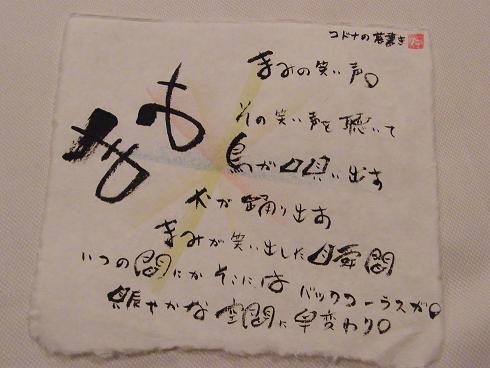 コドナの落書き
きみの笑い声。
その笑い声を聴いて
鳥が唄い出す
犬が踊り出す
きみが笑い出した瞬間
いつの間にかそこには バックコーラスが。
賑やかな空間に早変わり。